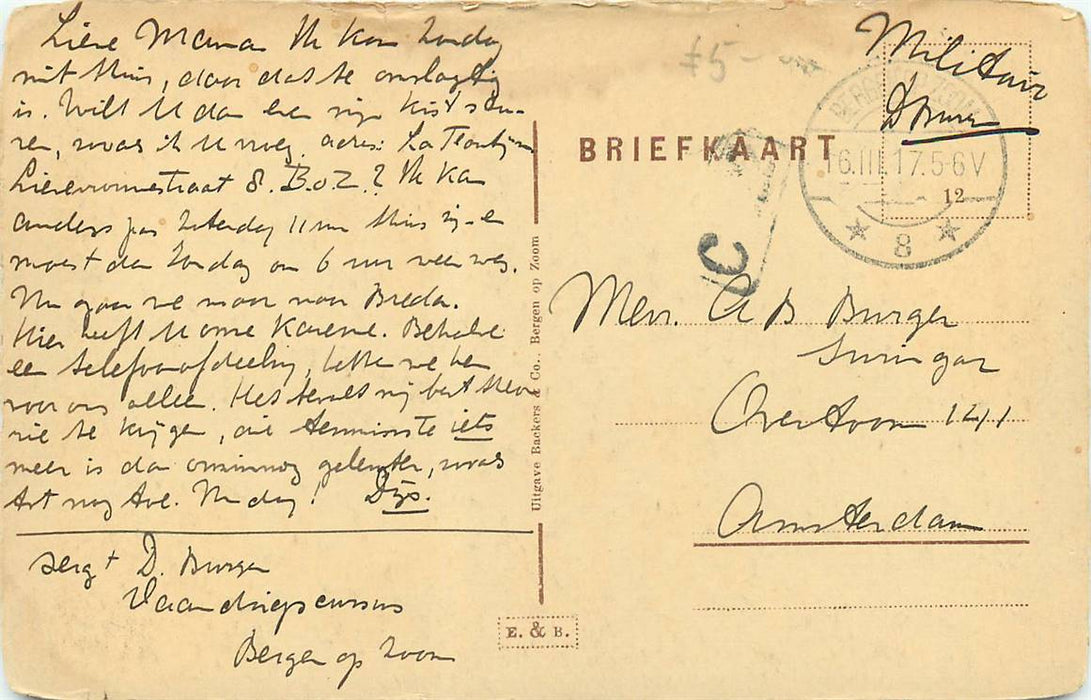 Lieve Mama Ik kan Zondag
niet thuis, daar dat te omslagtig
is. Wilt U dan een kist stu-
ren, waar ik U nog adres:
Lievevrouwestraat 8. B.o.Z.? Ik kan
anders pas Zaterdag 11 uur thuis zijn en
moest dan Zondag om 6 uur weer weg.
Nu gaan we maar naar Breda.
Hier heeft U onze Kazerne. Behalve
een telefoonafdeeling, hebben we hem
voor ons alleen. Het
nie te krijgen, die tenminste iets
meer is dan gelukter, zoals
Art nog Ave. Nu dag! Dijs.
sergt D. Burger
Vaandrigscursus
Bergen op Zoom
Uitgave Backers & Co., Bergen op Zoom
E. & B.
£5-
Militair
D Burger
BRIEFKAART
BERGEN OP ZOOM
16.III.17.5-6V
12
8
C
Mevr. A B Burger
Suringar
Overtoom 141
Amsterdam